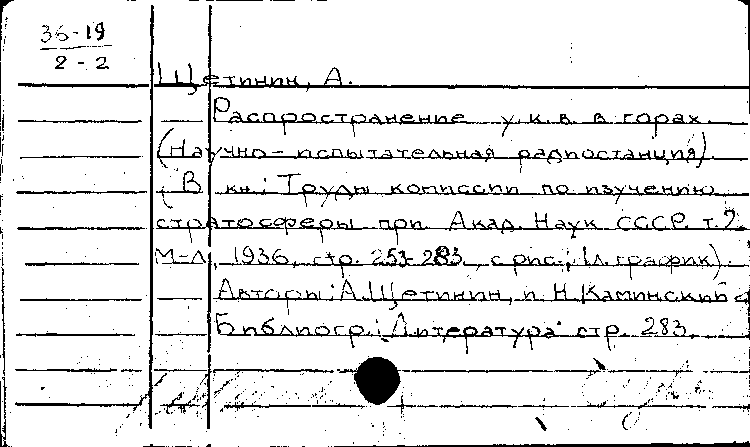 36-19
2-2
Щетинин, А.
Распространение у.к.в. в горах.
(Научно-испытательная радиостанция).
(В кн.: Труды комиссии по изучению
стратосферы при Акад. Наук СССР. т.2.
М-Л, 1936, стр. 253-283, с рис.; 1 л. график).
Авторы: А. Щетинин, и Н. Каминский
Библиогр.: "Литература" стр. 283.